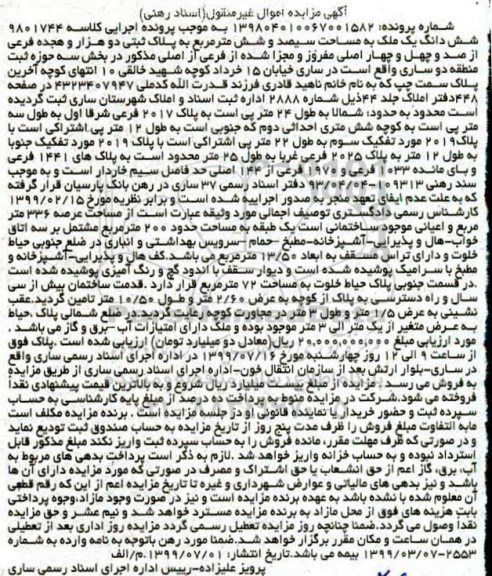 آگهی مزایده اموال غیرمنقول(اسناد رهنی)
شماره پرونده: ۱۳۹۸۰۴۰۱۰۰۶۷۰۰۱۵۸۲ به موجب پرونده اجرایی کلاسه ۹۸۰۱۷۴۴
شش دانگ یک ملک به مساحت سیصد و شش مترمربع به پلاک ثبتی دو هزار و هجده فرعی
از صد و چهل و چهار اصلی مفروز و مجزا شده از فرعی از اصلی مذکور در بخش سه حوزه ثبت
منطقه دو ساری واقع است در ساری خیابان ۱۵ خرداد کوچه شهید خالقی ۱۰ انتهای کوچه آخرین
پلاک سمت چپ که به نام خانم ناهید قادری فرزند قدرت الله کدملی ۴۲۲۳۴۰۷۹۴۷ در صفحه
۴۴۸دفتر املاک جلد ۴۴ذیل شماره ۲۸۸۸ اداره ثبت اسناد و املاک شهرستان ساری ثبت گردیده
است محدود به حدود: شمالا به طول ۲۴ متر پی است به پلاک ۲۰۱۷ فرعی شرقا اول به طول سه
متر پی است به کوچه شش متری احداثی دوم که جنوبی است به طول ۱۲ متر پی اشتراکی است با
پلاک۲۰۱۹ مورد تفکیک سوم به طول ۲۲ متر پی اشتراکی است با پلاک ۲۰۱۹ مورد تفکیک جنوبا
به طول ۱۲ متر به پلاک ۲۰۲۵ فرعی غربا به طول ۲۵ متر محدود است به پلاک های ۱۴۴۱ فرعی
و باقی مانده ۱۰۳۳ فرعی و ۱۹۷۰ فرعی از ۱۴۴ اصلی حد فاصل سیم خاردار است و به موجب
سند رهنی ۱۰۹۳۱۳-۹۳/۰۲/۰۴ دفتر اسناد رسمی ۳۷ ساری در رهن بانک پارسیان قرار گرفته
که به علت عدم ایفای تعهد منجر به صدور اجراییه شده است و برابر نظریه مورخ ۱۳۹۹/۰۲/۱۵
کارشناس رسمی دادگستری توصیف اجمالی مورد وثیقه عبارت است از مساحت عرصه ۳۳۶ متر
مربع و اعیانی موجود ساختمانی است یک طبقه به مساحت حدود ۲۰۰ مترمربع مشتمل بر سه اتاق
خواب-هال و پذیرایی-آشپزخانه-مطبخ -حمام -سرویس بهداشتی و انباری در ضلع جنوبی حیاط
خلوت و دارای تراس مسقف به ابعاد ۱۳/۵۰ مترمربع می باشد.کف هال و پذیرایی-آشپزخانه و
مطبخ با سرامیک پوشیده شده است و دیوار سقف با اندود گچ و رنگ آمیزی پوشیده شده است
.در قسمت جنوبی پلاک حیاط خلوت به مساحت ۷۲ مترمربع قرار دارد .قدمت ساختمان بیش از سی
سال و راه دسترسی به پلاک از کوچه به عرض ۲/۶۰ متر و طول ۱۰/۵۰ متر تامین گردید.عقب
نشینی به عرض ۱/۵ متر و طول ۳ متر در مجاورت کوچه رعایت گردید.در ضلع شمالی پلاک ،حیاط
به عرض متغیر از یک متر الی ۳ متر موجود بوده و ملک دارای امتیازات آب -برق و گاز می باشد .
مورد ارزیابی مبلغ ۲۰,۰۰۰,۰۰۰,۰۰۰ ریال(معادل دو میلیارد تومان) ارزیابی شده است .پلاک فوق
از ساعت ۹ الی ۱۲ روز چهارشنبه مورخ ۱۳۹۹/۰۷/۱۶ در اداره اجرای اسناد رسمی ساری واقع
در ساری-بلوار ارتش بعد از سازمان انتقال خون-اداره اجرای اسناد رسمی ساری از طریق مزایده
به فروش می رسد .مزایده از مبلغ بیست میلیارد ریال شروع و به بالاترین قیمت پیشنهادی نقدا
فروخته می شود.شرکت در مزایده منوط به پرداخت ده درصد از مبلغ پایه کارشناسی به حساب
سپرده ثبت و حضور خریدار یا نماینده قانونی او در جلسه مزایده است . برنده مزایده مکلف است
مابه التفاوت مبلغ فروش را ظرف مدت پنج روز از تاریخ مزایده به حساب صندوق ثبت تودیع نماید
و در صورتی که ظرف مهلت مقرر، مانده فروش را به حساب سپرده ثبت واریز نکند مبلغ مذکور قابل
استرداد نبوده و به حساب خزانه واریز خواهد شد .لازم به ذکر است پرداخت بدهی های مربوط به
آب، برق، گاز اعم از حق انشعاب یا حق اشتراک و مصرف در صورتی که مورد مزایده دارای آن ها
باشد و نیز بدهی های مالیاتی و عوارض شهرداری و غیره تا تاریخ مزایده اعم از این که رقم قطعی
آن معلوم شده یا نشده باشد به عهده برنده مزایده است و نیز در صورت وجود مازاد،وجوه پرداختی
بابت هزینه های فوق از محل مازاد به برنده مزایده مسترد خواهد شد و نیم عشر و حق مزایده
نقدا وصول می گردد.ضمنا چنانچه روز مزایده تعطیل رسمی گردد مزایده روز اداری بعد از تعطیلی
در همان ساعت و مکان مقرر برگزار خواهد شد.ضمنا مورد رهن باتوجه به نامه وارده به شماره
۲۵۵۳-۱۳۹۹/۰۳/۰۷ بیمه می باشد.تاریخ انتشار: ۱۳۹۹/۰۷/۰۱.م/الف
پرویز علیزاده-رییس اداره اجرای اسناد رسمی ساری